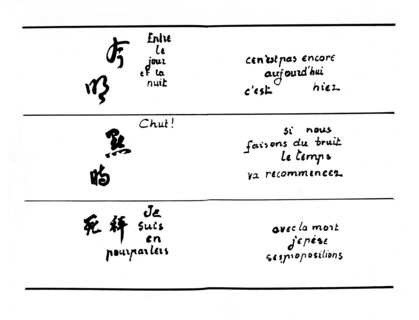 明
Entre
le
jour
et la
nuit
ce n'est pas encore
aujourd'hui
c'est hier
Chut!
si nous
faisons du bruit
le temps
va recommencer
死 秤
Je
suis
en
pourparlers
avec la mort
je pèse
ses propositions